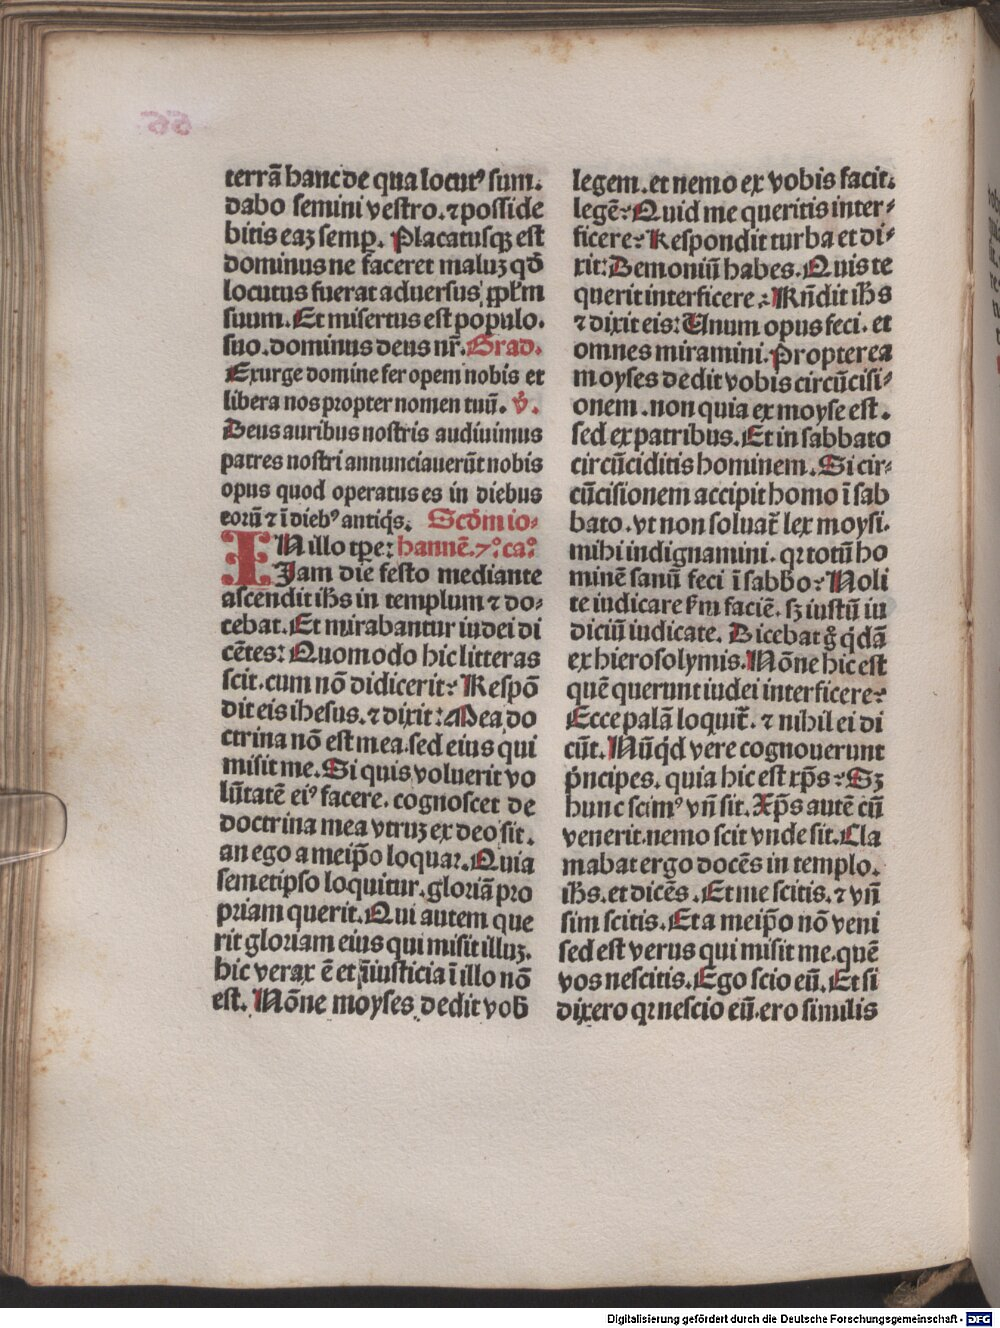 terrã hanc de qua locutꝰ sum.
dabo semini vestro. ⁊ posside
bitis eaȝ semꝑ. Placatusqȝ est
dominus ne faceret maluȝ qđ
locutus fuerat aduersus ꝓpłm
suum. Et misertus est populo.
suo. dominus deus nr̃. Grad.
Exurge domine fer opem nobis et
libera nos propter nomen tuũ. v̾.
Deus auribus nostris audiuimus
patres nostri annunciauerũt nobis
opus quod operatus es in diebus
eorũ ⁊ ĩ diebꝰ antiq̃s. Scðm io-
IN illo tꝑe: hannẽ. 7.° ca°
Jam die festo mediante
ascendit ihs̃ in templum ⁊ do-
cebat. Et mirabantur iudei di
cẽtes: Quomodo hic litteras
scit. cum nõ didicerit? Respõ
dit eis ihesus. ⁊ dixit: Mea do
ctrina nõ est mea. sed eius qui
misit me. Si quis voluerit vo
lũtatẽ eiꝰ facere. cognoscet de
doctrina mea vtruȝ ex deo sit.
an ego a meip̃o loquar. Quia
semetipso loquitur. gloriã pro
priam querit. Qui autem que
rit gloriam eius qui misit illuȝ.
hic verax ẽ et ĩiusticia ĩ illo nõ
est. Nõne moyses dedit vob̃
legem. et nemo ex vobis facit.
legẽ? Quid me queritis inter-
ficere? Respondit turba et di-
xit: Demoniũ habes. Quis te
querit interficere? Rñdit ihs̃
⁊ dixit eis: Unum opus feci. et
omnes miramini. Propterea
moyses dedit vobis circũcisi-
onem. non quia ex moyse est.
sed ex patribus. Et in sabbato
circũciditis hominem. Si cir-
cũcisionem accipit homo ĩ sab
bato. vt non soluat̃ lex moysi.
mihi indignamini. qꝛ totũ ho
minẽ sanũ feci ĩ sabb̃o? Noli
te iudicare s̃m faciẽ. sȝ iustũ iu
diciũ iudicate. Dicebãt g̊ q̇dã
ex hierosolymis. Nõne hic est
quẽ querunt iudei interficere?
Ecce palã loquit̃. ⁊ nihil ei di
cũt. Nũq̇d vere cognouerunt
p̃ncipes. quia hic est xp̃s? Sȝ
hunc scimꝰ vñ sit. Xp̃s autẽ cũ
venerit. nemo scit vnde sit. Cla
mabat ergo docẽs in templo.
ihs̃. et dicẽs. Et me scitis. ⁊ vñ
sim scitis. Et a meip̃o nõ veni
sed est verus qui misit me. quẽ
vos nescitis. Ego scio eũ. Et si
dixero qꝛ nescio eũ. ero similis
Digitalisierung gefördert durch die Deutsche Forschungsgemeinschaft - DFG